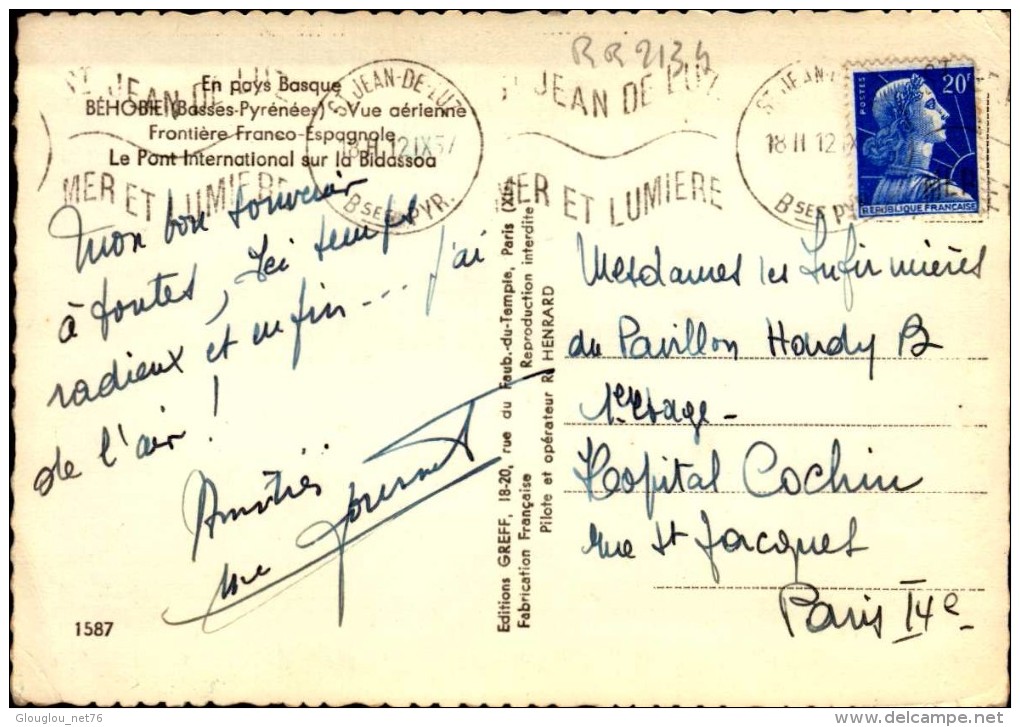 RR 2134
En pays Basque
BÉHOBIE (Basses-Pyrénées) - Vue aérienne
Frontière Franco-Espagnole
Le Pont International sur la Bidassoa
ST JEAN DE LUZ
MER ET LUMIERE
ST JEAN-DE-LUZ
18 H 12 IX 57
Bses PYR.
ST JEAN DE LUZ
MER ET LUMIERE
ST JEAN-
18 H 12
Bses P
POSTES
20F
REPUBLIQUE FRANÇAISE
Mon bon souvenir
à toutes, Ici temps
radieux et enfin... j'ai
de l'air !
Amitiés
Mme
1587
Editions GREFF, 18-20, rue du Faub.-du-Temple, Paris (XIe)
Fabrication Française
Reproduction interdite
Pilote et opérateur R. HENRARD
Mesdames les Infirmières
du Pavillon Hardy B
1er Etage -
Hopital Cochin
rue St Jacques
Paris 14e
Glouglou_net76